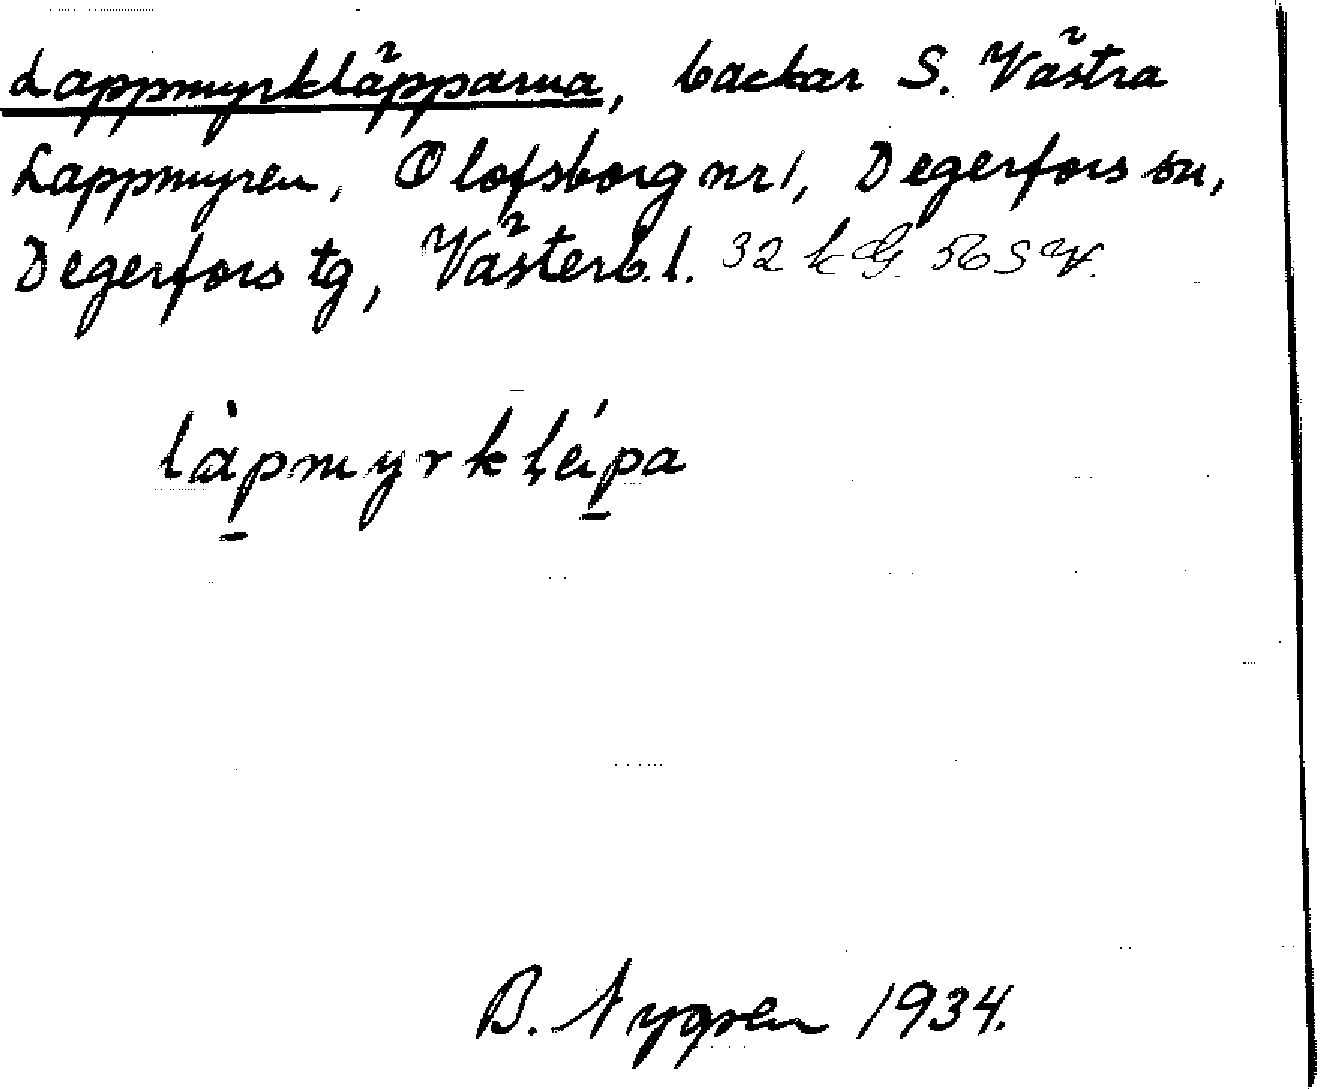 Lappmyrkläpparna, backar S. Västra
Lappmyren, Olofsborg nr 1, Degerfors sn,
Degerfors tg, Västerb. l. 32 k G. 56 SV.
làpmyrkḷépa
B. Nygren 1934.